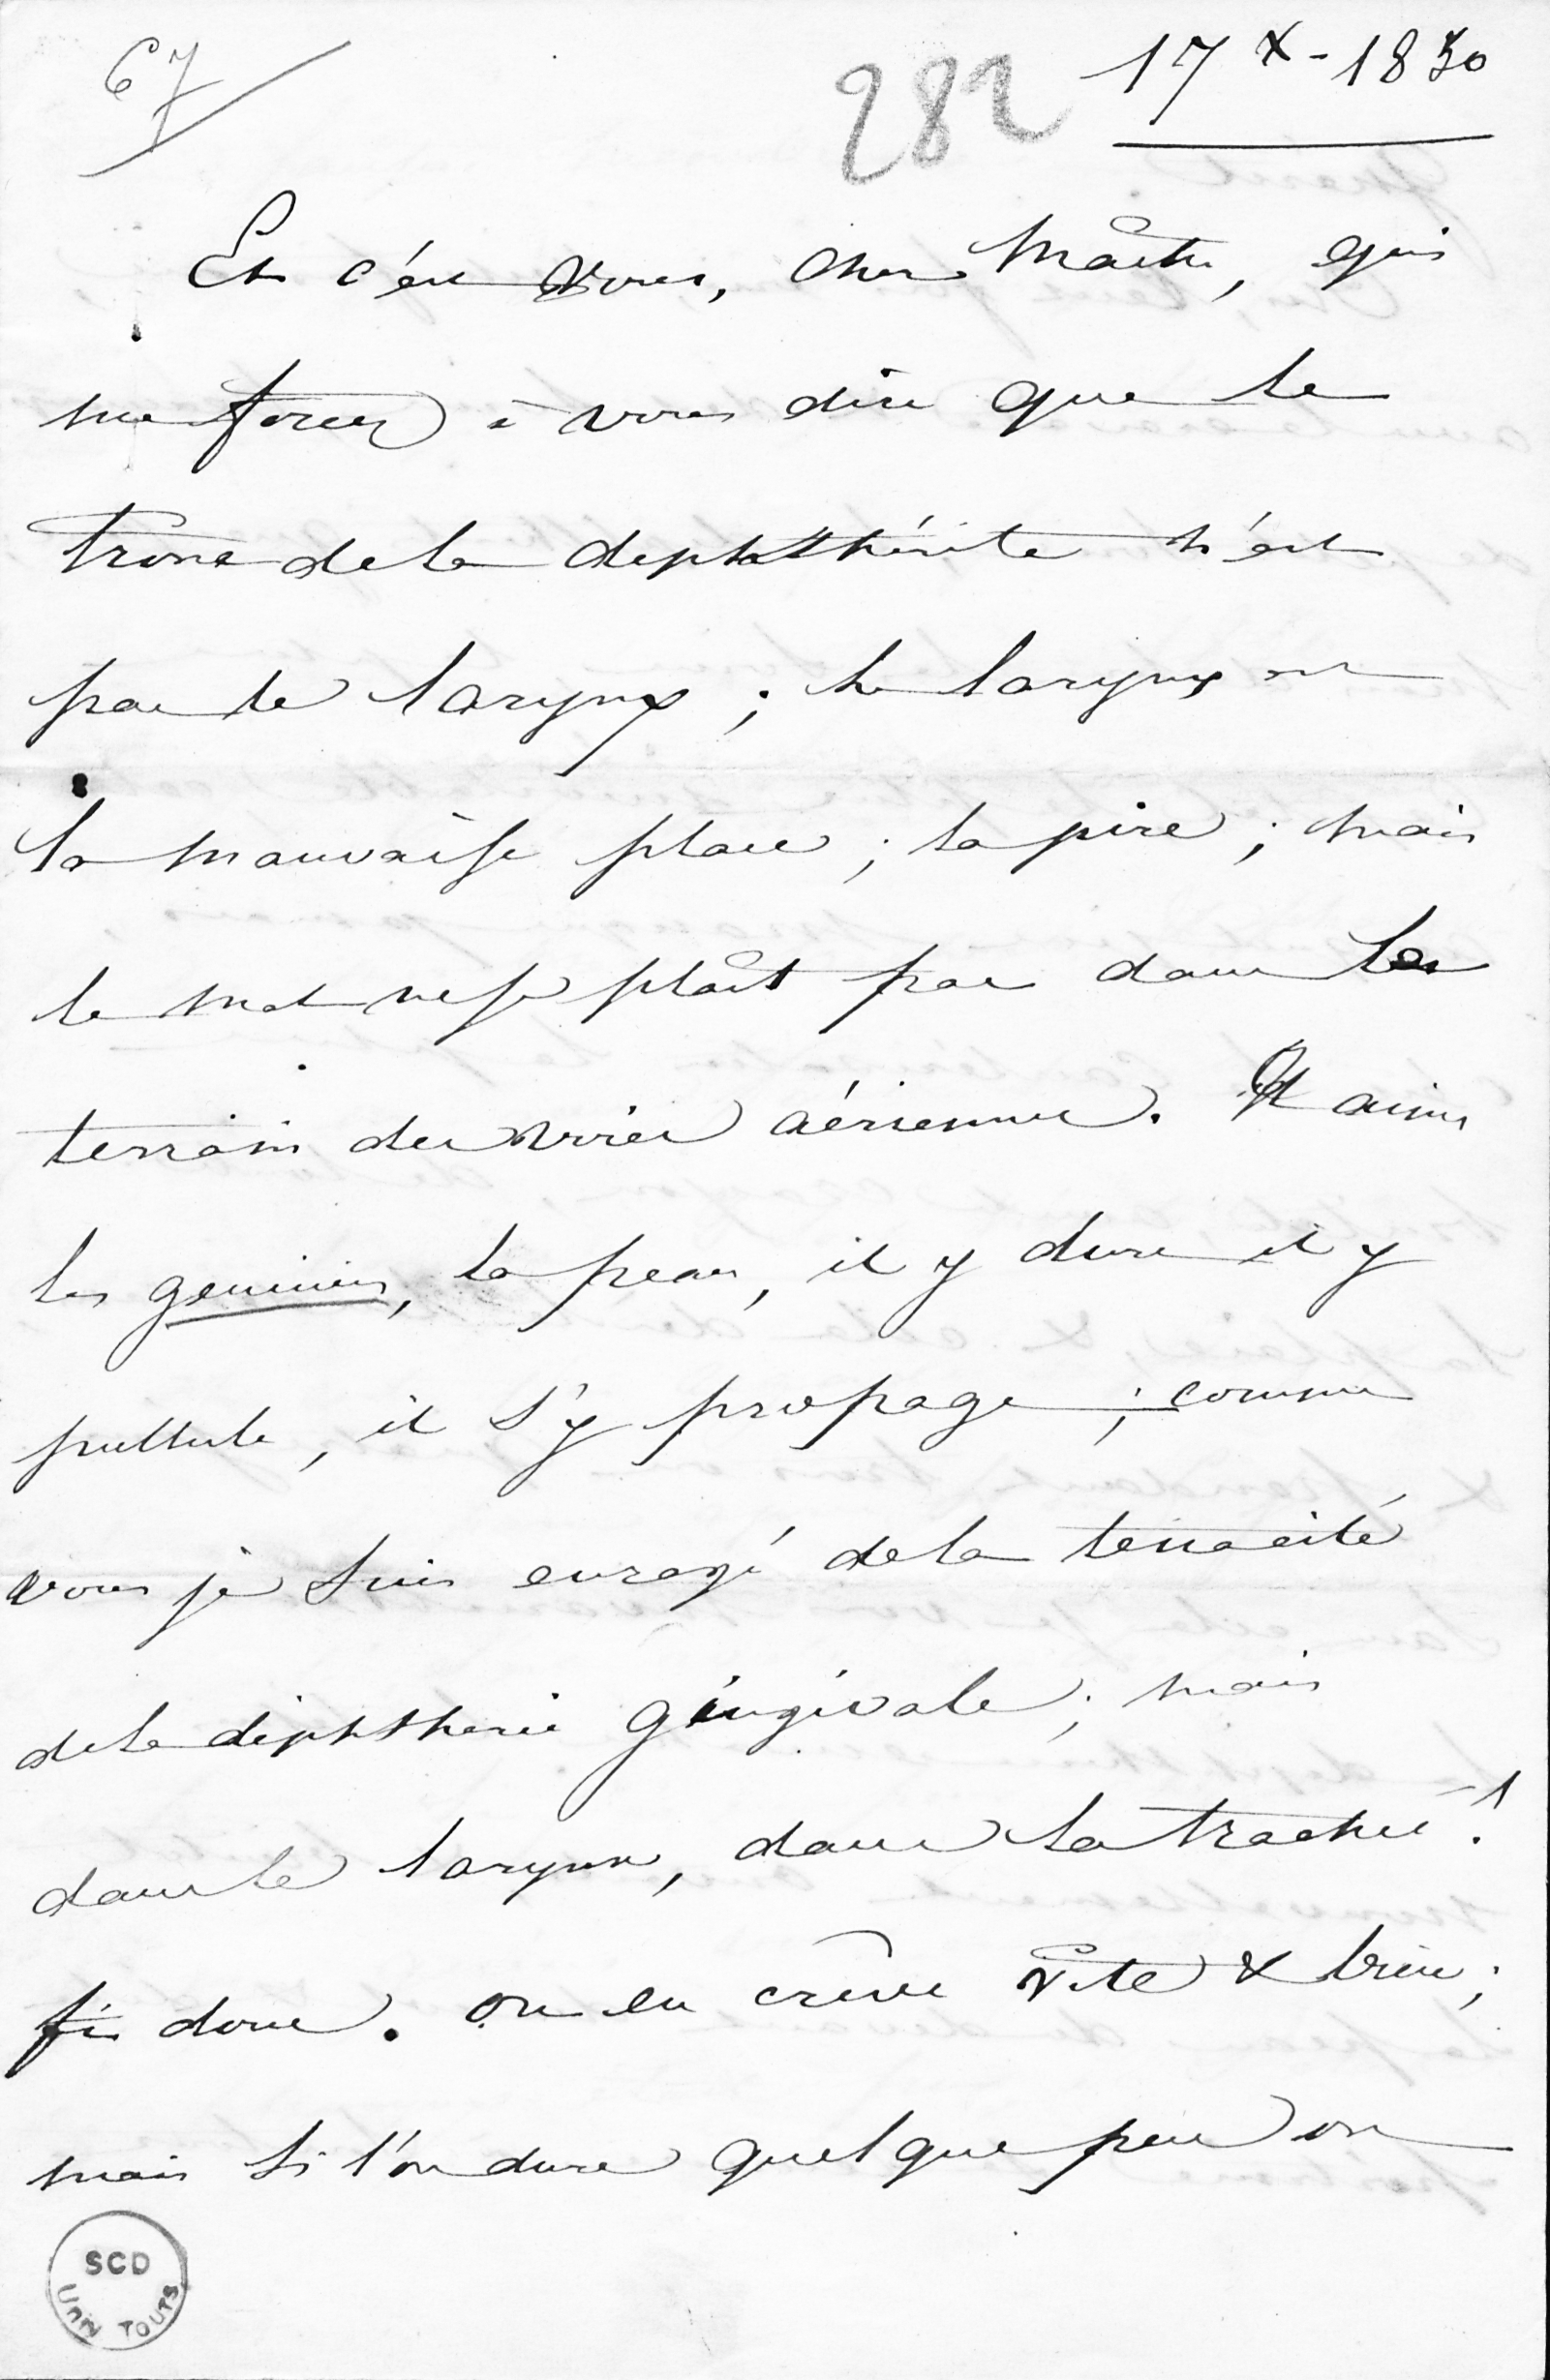 67
282
17 X - 1830
Et c'est vous, cher Maître, qui
me forcez à vous dire que le
trone de la diphthérite n'est
pas le larynx ; le larynx est
la mauvaise place ; la pire ; mais
le mal ne se plaît pas dans les
terrain des voies aériennes. Il aime
les gencives, la peau, il y dure il y
pullule, il s'y propage ; comme
vous je suis enragé de la ténacité
de la diphthérie gingivale ; mais
dans le larynx, dans la trachée !
fi donc. on en crève vite & bien ;
mais si l'on dure quelque peu on
SCD
Univ TOURS